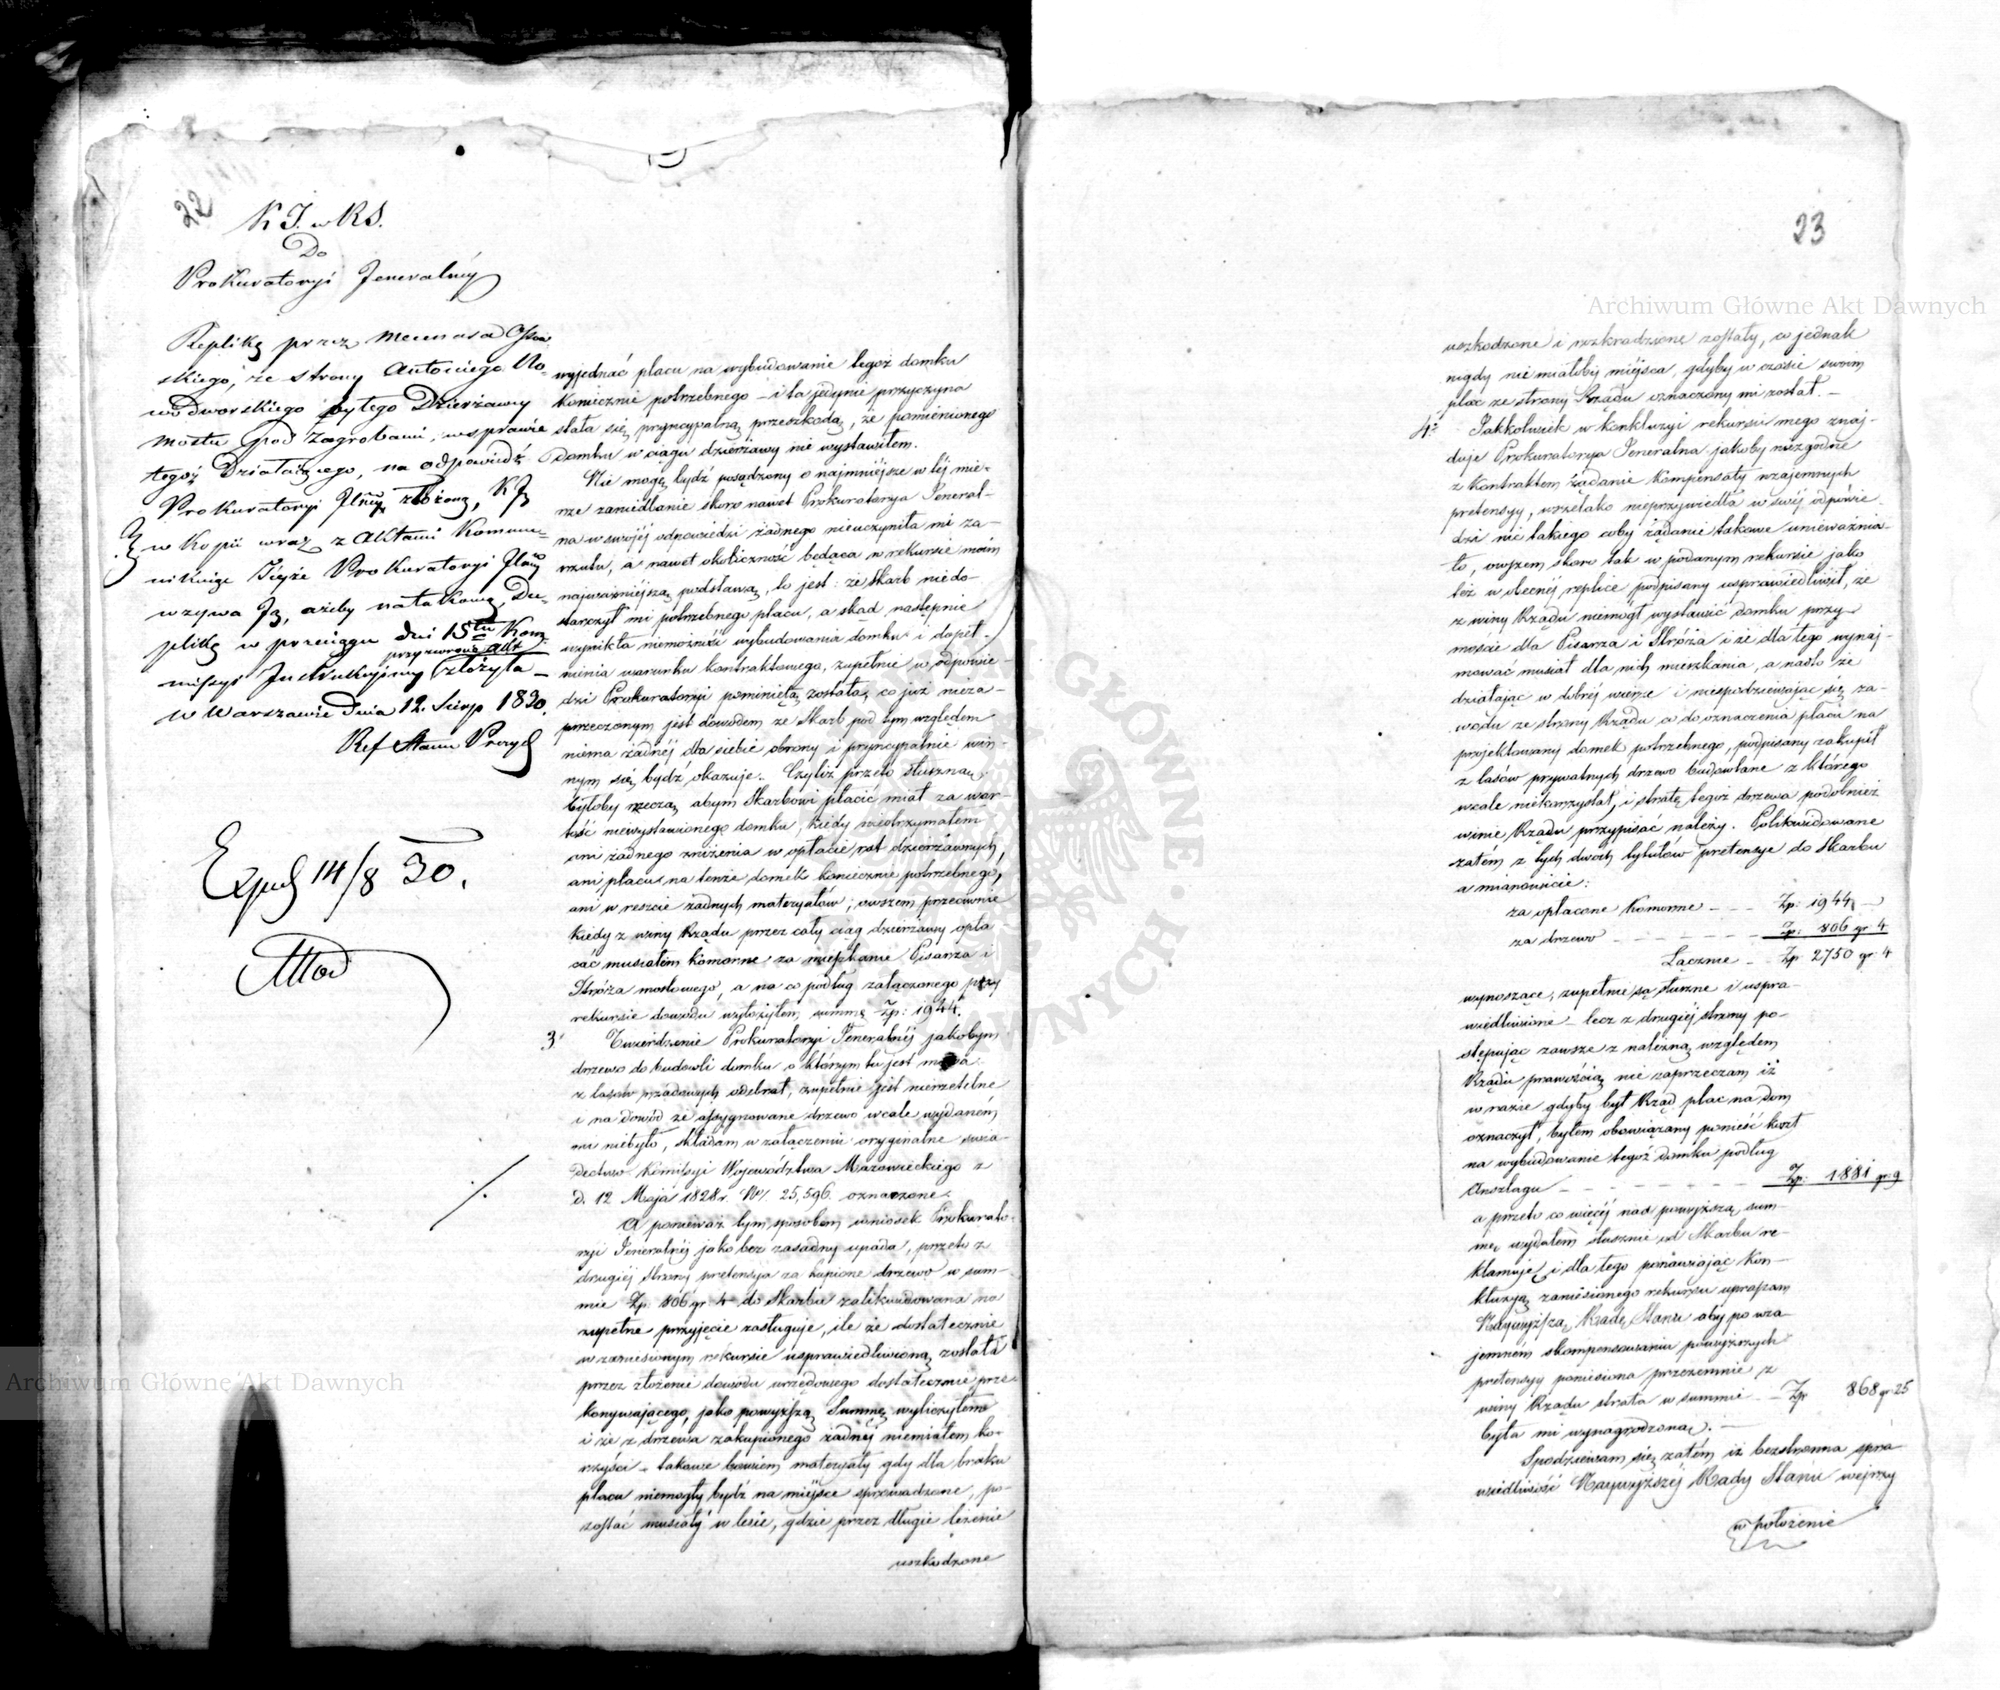 22
K J. w RS.
Do
Prokuratoryi Jeneralnéy
Replikę przez Mecenasa
skiego, ze strony Antoniego No-
wodworskiego bytego Dzierżawcy
mostu pod Zagrobami, w sprawie
tegoż Działaiącego, na odpowiedź
Prokuratoryi Jlnéy złożoną, K J
w kopii wraz z Aktami kommu-
nikuiąc Teyże Prokuratoryi Jlnéy
wzywa Ją, ażeby natakową Du-
plikę w przeciągu dni 15tu Kom-
przy zwrocie akt
missyi Instrukcyiney złożyła –
w Warszawie Dnia 12. Sierp 1830.
Ref Stanu
Exped 14/8 30.
wyjednać placu na wybudowanie tegoż domku
koniecznie potrzebnego – i ta jedynie przyczyna
stała się pryncypalną przeszkodą, że pomienionego
domku w ciągu dzierżawy nie wystawiłem.
Nie mogę bydź posądzony o najmniejsze w téj mie-
rze zaniedbanie skoro nawet Prokuratorya Jeneral-
na w swojéj odpowiedzi żadnego nieuczyniła mi za-
rzutu, a nawet okoliczność będąca w rekursie moim
najważniejszą podstawą, to jest: że Skarb niedo-
starczył mi potrzebnego placu, a skąd następnie
wynikła niemożność wybudowania domku i dopeł-
nienia warunku kontraktowego, zupełnie w odpowie-
dzi Prokuratoryi pominiętą została, co już nieza-
przeczonym jest dowodem że Skarb pod tym względem
niema żadnéj dla siebie obrony i pryncypalnie win-
nym się bydź okazuje. Czyliż przeto słuszną
byłoby rzeczą abym Skarbowi płacić miał za war-
tość niewystawionego domku, kiedy nieotrzymałem
ani żadnego zniżenia w opłacie rat dzierżawnych,
ani placu na tenże domek koniecznie potrzebnego,
ani w reszcie żadnych materyałów; owszem przeciwnie
kiedy z winy Rządu przez cały ciąg dzierżawy opła-
cać musiałem komorne za mieszkanie Pisarza i
Stróża mostowego, a na co podług załączonego przy
rekursie dowodu wyłożyłem summę Zp: 1944.
3° Twierdzenie Prokuratoryi Jeneralnéj jakobym
drzewo do budowli domku o którym tu jest mowa
z lasów rządowych odebrał, zupełnie jest nierzetelne
i na dowód że assygnowane drzewo wcale wydanem
mi niebyło, składam w załączeniu oryginalne świa-
dectwo Komissyi Województwa Mazowieckiego z
d. 12 Maja 1828 r. N°. 25,596 oznaczone.
A ponieważ tym sposobem wniosek Prokurato-
ryi Jeneralnéj jako bez zasadny upada, przeto z
drugiéj strony pretensya za kupione drzewo w sum-
mie Zp. 806 gr. 4 do Skarbu zalikwidowana na
zupełne przyjęcie zasługuje, ile że dostatecznie
w zaniesionym rekursie usprawiedliwioną została
przez złożenie dowodu urzędowego dostatecznie prze-
konywającego, jako powyższą Summę wyliczyłem
i że z drzewa zakupionego żadnéj niemiałem ko-
rzyści – takowe bowiem materyały gdy dla braku
placu niemogły bydź na miejsce sprowadzone, po-
zostać musiały w lesie, gdzie przez długie leżenie
uszkodzone
23
uszkodzone i rozkradzione zostały, co jednak
nigdy nie miałoby miéjsca, gdyby w czasie swoim
plac ze strony Rządu oznaczony mi został. –
4° Jakkolwiek w konkluzyi rekursu mego znaj-
duje Prokuratorya Jeneralna jakoby niezgodne
z kontraktem żądanie kompensaty wzajemnych
pretensyy, wszelako nieprzywiedła w swéj odpowie-
dzi nic takiego coby żądanie takowe unieważnia-
ło, owszem skoro tak w podanym rekursie jako
też w obecnéj replice podpisany usprawiedliwił, że
z winy Rządu niemógł wystawić domku przy
moście dla Pisarza i Stróża i że dla tego wynaj-
mować musiał dla nich mieszkania, a nadto że
działając w dobréj wierze i niespodziewając się za-
wodu ze strony Rządu co do oznaczenia placu na
projektowany domek potrzebnego, podpisany zakupił
z lasów prywatnych drzewo budowlane z którego
wcale niekorzystał, i stratę tegoż drzewa podobnież
winie Rządu przypisać należy. Polikwidowane
zatém z tych dwóch tytułów pretensye do Skarbu
a mianowicie:
za opłacone komorne – – – Zp: 1944 –
za drzewo – – – – – – Zp: 806 gr 4
Łącznie – Zp. 2750 gr. 4
wynoszące, zupełnie są słuszne i uspra-
wiedliwione – lecz z drugiéj strony po-
stępując zawsze z należną względem
Rządu prawością nie zaprzeczam iż
w razie gdyby był Rząd plac na dom
oznaczył, byłem obowiązany ponieść koszt
na wybudowanie tegoż domku podług
Anszlagu – – – – – – – Zp: 1881 gr 9
a przeto co więcéj nad powyższą sum-
mę wydałem słusznie od Skarbu re-
klamuję, i dla tego ponawiając kon-
kluzyą zaniesionego rekursu upraszam
Naywyższą Radę Stanu aby po wza-
jemném skompensowaniu powyższych
pretensyy poniesiona przezemnie z
winy Rządu strata w summie – Zp 868 gr 25
była mi wynagrodzoną. –
Spodziewam się zatém iż bezstronna spra-
wiedliwość Naywyższéj Rady Stanu wejrzy
w położenie
Archiwum Główne Akt Dawnych
Archiwum Główne Akt Dawnych